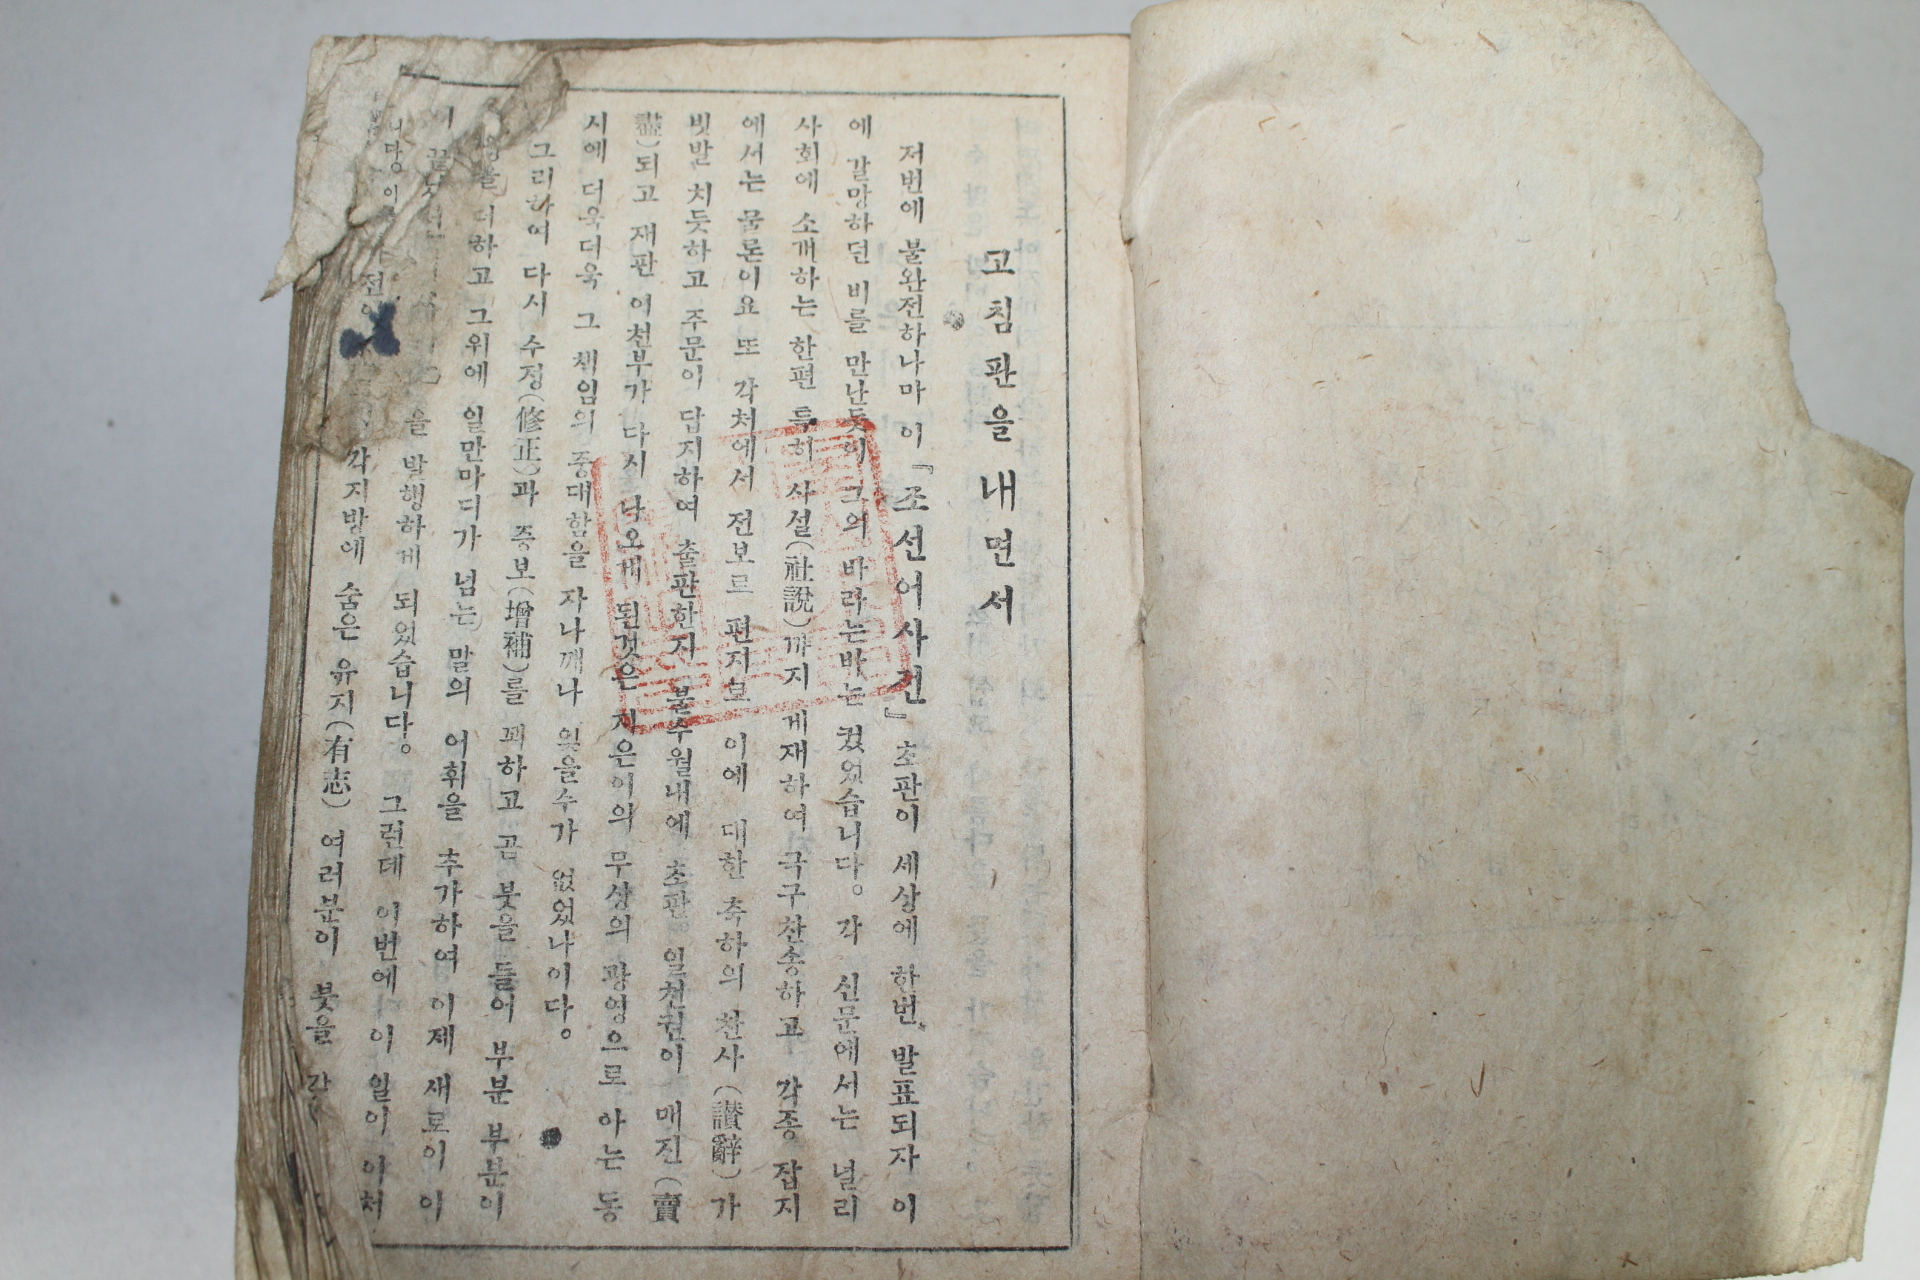 고침판을내면서
저번에 불완전하나마 이 「조선어사전」 초판이 세상에 한번 발표되자 이
에 갈망하던 비를 만난듯이 그의 바라는바는 컸었습니다。 각 신문에서는 널리
사회에 소개하는 한편 특히 사설(社說)까지 게재하여 극구찬송하고 각종 잡지
에서는 물론이요 또 각처에서 전보로 편지로 이에 대한 축하의 찬사(讃辭)가
빗발 치듯하고 주문이 답지하여 출판한지 불수월내에 초판 일천권이 매진(賣
盡)되고 재판 여천부가 다시 나오게 된것은 지은이의 무상의 광영으로 아는 동
시에 더욱더욱 그 책임의 중대함을 자나깨나 잊을수가 없었나이다。
그리하여 다시 수정(修正)과 증보(增補)를 꾀하고 곧 붓을 들어 부분 부분이
을 더하고 그위에 일만마디가 넘는 말의 어휘을 추가하여 이제 새로이 이
을 발행하게 되었습니다。 그런데 이번에 이 일이 이처
각지방에 숨은 유지(有志) 여러분이 붓을